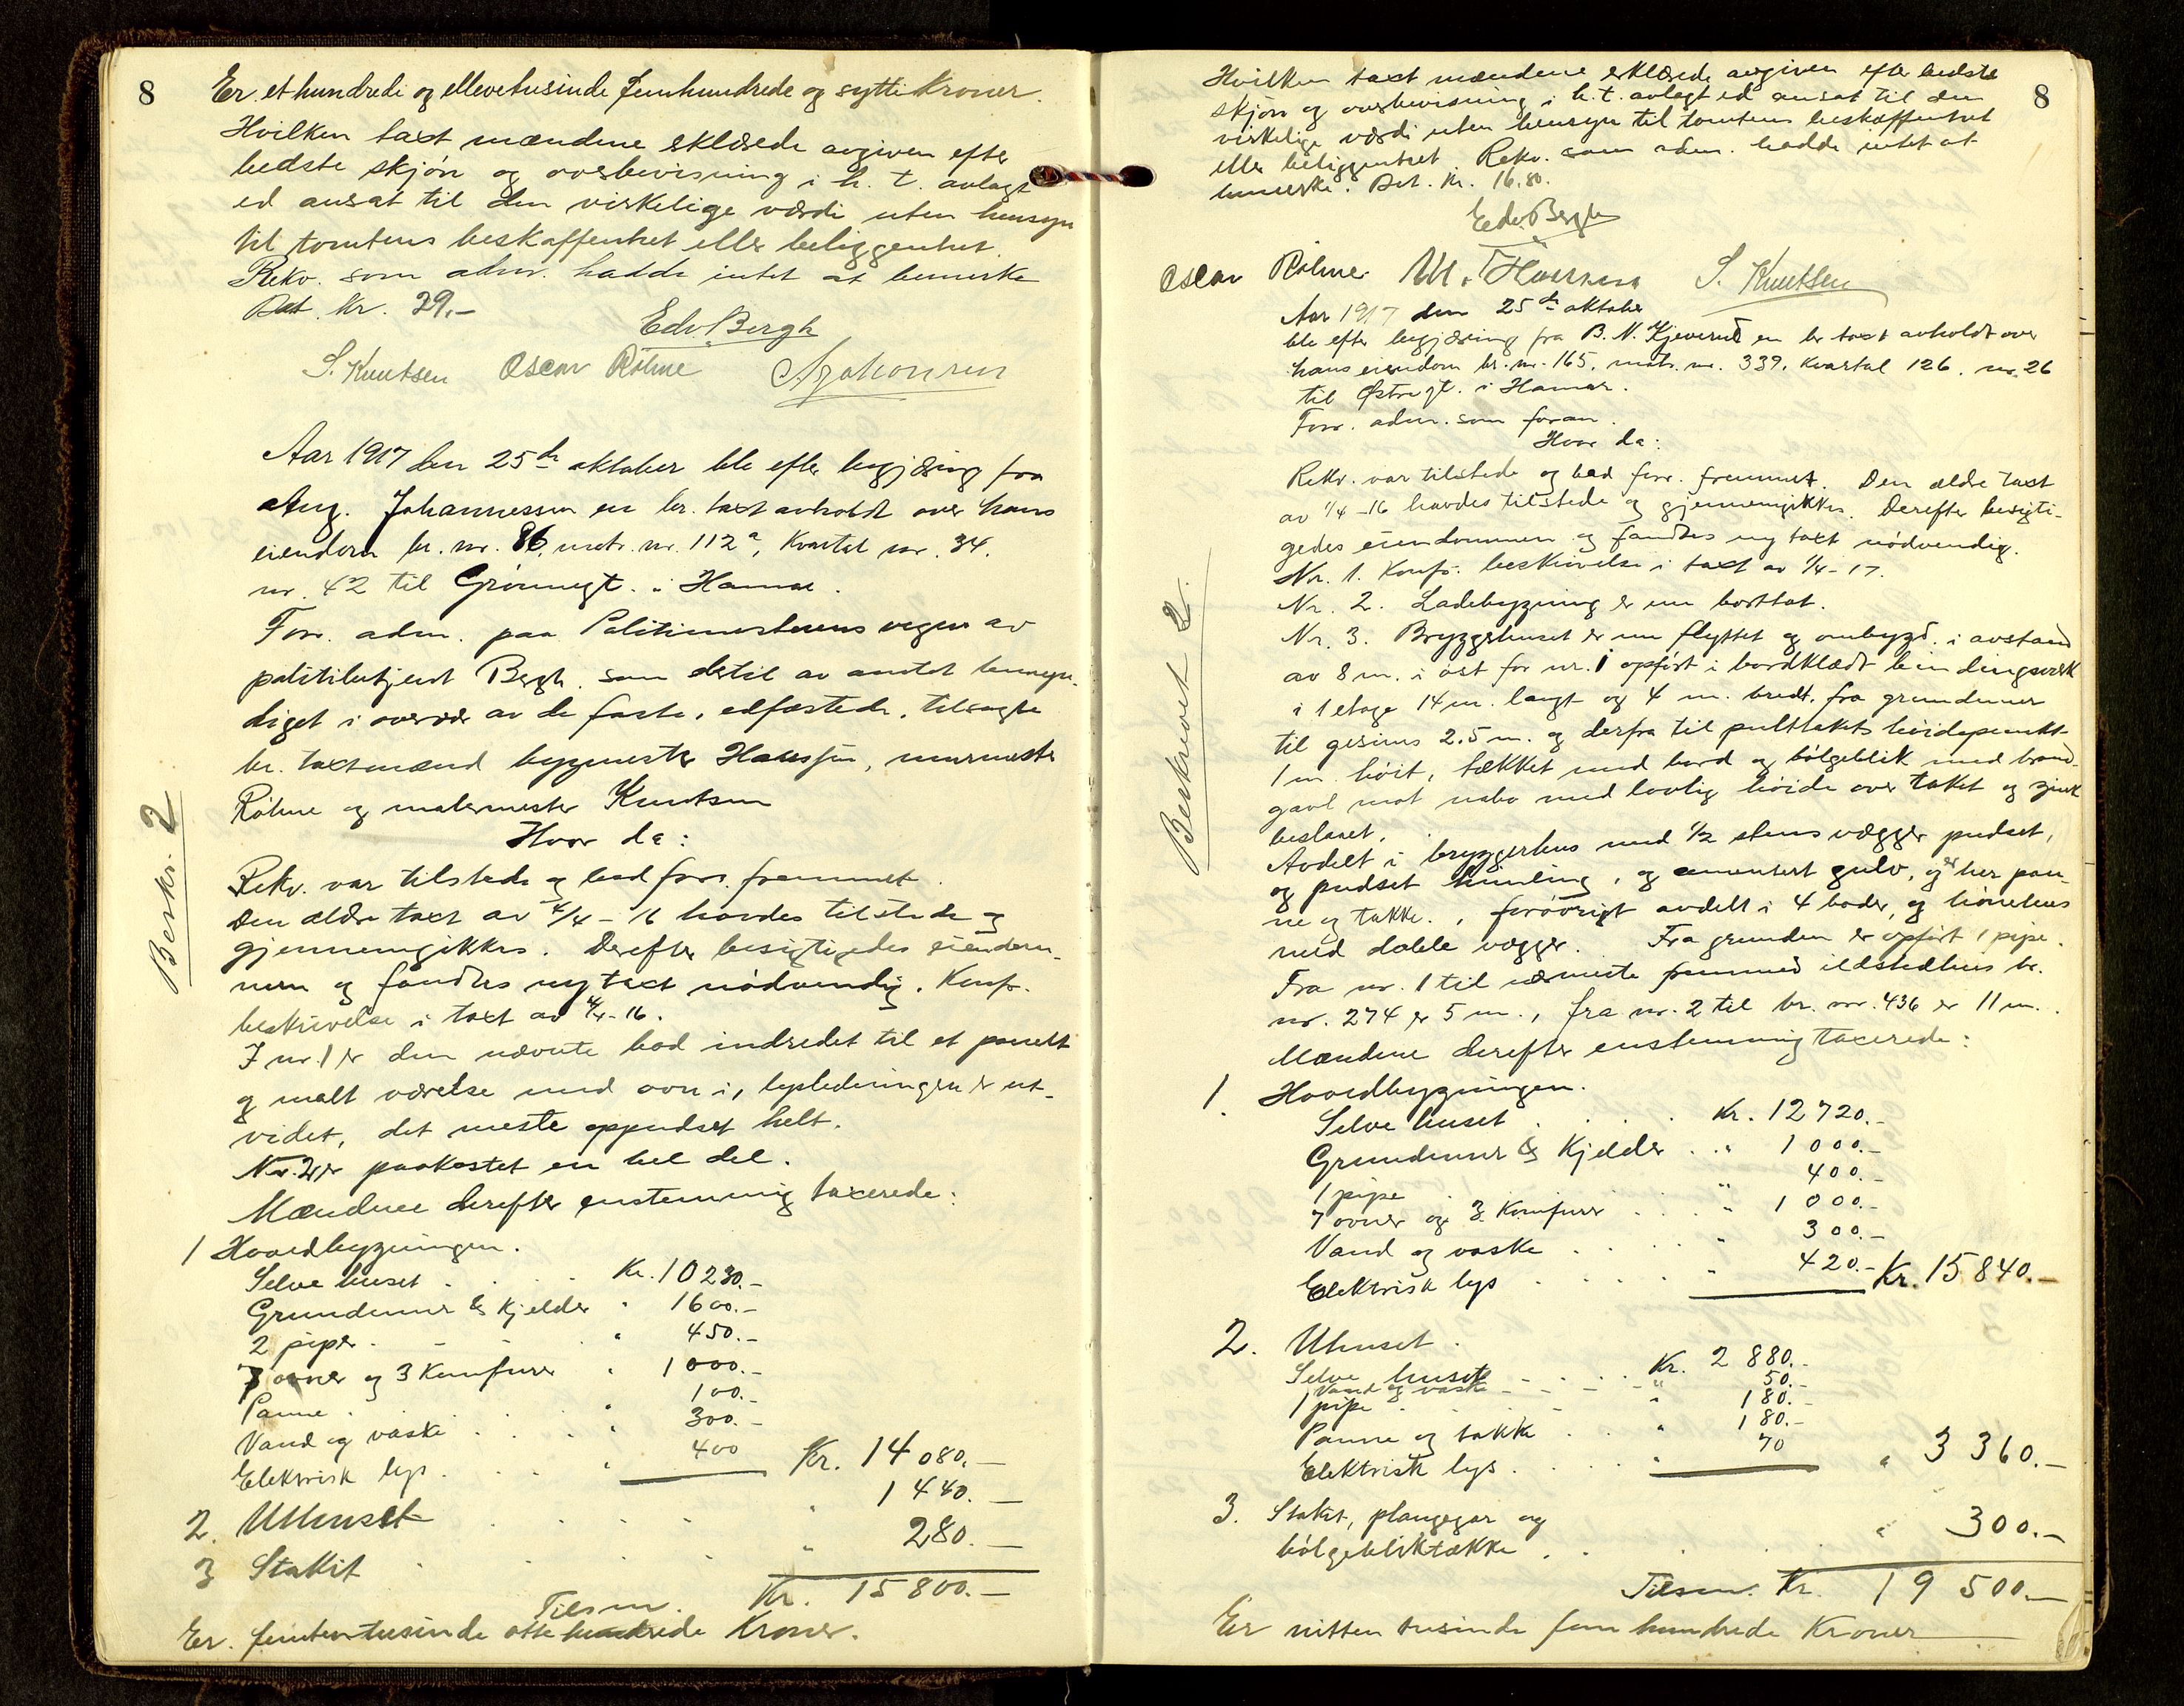 8
Er et hundrede og ellevetusinde femhundrede og sytti Kroner.
Hvilken taxt mændene erklærede avgiven efter
bedste skjøn og overbevisning i h. t. avlagt
ed ansat til den virkelige værdi uten hensyn
til tomtens beskaffenhet eller beliggenhet.
Rekv. som adm. hadde intet at bemerke
Bet. kr. 29.-
Edv. Bergh
S. Knutsen Oscar Röhne
Aar 1917 den 25de oktober ble efter begjæring fra
Aug. Johannessen en br. taxt avholdt over hans
eiendom br. nr. 86, matr. nr. 112a, Kvartal nr. 34.
nr. 42 til Grønnegt. i Hamar.
Forr. adm. paa Politimesterens vegne av
politibetjent Bergh som dertil av amtet bemyn-
diget i overvær av de faste, edfæstede, tilsagte
br. taxtmænd bygmester Hanssen, murmester
Röhne og malermester Knutsen
Hvor da:
Berkr. 2
Rekv. var tilstede og bad forr. fremmet.
Den ældre taxt av 4/4 - 16 havdes tilstede og
gjennemgikkes. Derefter besigtigedes eiendom-
men og fandtes ny taxt nødvendig. Konfr.
beskrivelse i taxt av 4/4 - 16.
I nr. 1 er den nævnte bod indredet til et panelt
og malt værelse med ovn i, lysledningen er ut-
videt, det meste oppudset helt.
Nr. 2 er paakostet en hel del.
Mændene derefter enstemmig taxerede:
1 Hovedbygningen.
Selve huset . . . . Kr. 10230.-
Grundmur & Kjelder " 1600.-
2 piper . - - " 450.-
7 ovner og 3 Komfurer " 1000.-
Panne . . . " 100.-
Vand og vaske . . . " 300.-
Elektrisk lys . . . " 400 Kr. 14080.-
2. Uthuset . . . . " 1440.-
3 Stakit . . . . " 280.-
Tilsm. Kr. 15800.-
Er femtentusinde otte hundrede Kroner.
8
Hvilken taxt mændene erklærede avgiven efter bedste
skjøn og overbevisning i h. t. avlagt ed ansat til den
virkelige værdi uten hensyn til tomtens beskaffenhet
eller beliggenhet. Rekv. som adm. hadde intet at
bemerke. Bet. Kr. 16.80.
Edv. Bergh
Oscar Röhne M. Hanssen S. Knutsen
Aar 1917 den 25de oktober
ble efter begjæring fra B. N. Kjeverud en br taxt avholdt over
hans eiendom br. nr. 165, matr. nr. 339, Kvartal 126, nr. 26
til Østregt. i Hamar.
Forr. adm. som foran.
Hvor da:
Beskrevet 2.
Rekv. var tilstede og bad forr. fremmet. Den ældre taxt
av 1/4 -16 havdes tilstede og gjennemgikkes. Derefter besigti-
gedes eiendommen og fandtes ny taxt nødvendig.
Nr. 1. Konfr. beskrivelse i taxt av 1/4 - 17.
Nr. 2. Ladebygning er nu borttat.
Nr. 3. Bryggerhuset er nu flyttet og ombygd. i avstand
av 8 m. i øst for nr. 1 opført i bordklædt bindingsverk
i 1 etage 14 m. langt og 4 m. bredt. fra grundmur
til gesims 2.5 m. og derfra til pulttakets høidepunkt
1 m. høit, tækket med bord og bølgeblik med brand-
gavl mot nabo med lovlig høide over taket og zink
beslaaet.
Avdelt i bryggerhus med 1/2 stens vægger pudset,
og pudset himling, og cementert gulv, og er her pan-
ne og takke., forøvrigt avdelt i 4 boder, og hønsehus
med doble vægger. Fra grunden er opført 1 pipe.
Fra nr. 1 til nærmeste fremmed ildstedhus br.
nr. 274 er 5 m., fra nr. 2 til br. nr. 436 er 11 m.
Mændene derefter enstemmig taxerede:
1. Hovedbygningen.
Selve huset . . . . Kr. 12720.-
Grundmur & Kjelder . . " 1000.-
1 pipe . . . " 400.-
7 ovner og 3 Komfurer . . . " 1000.-
Vand og vaske . . . " 300.-
Elektrisk lys . . . . " 420.- Kr. 15840.-
2. Uthuset.
Selve huset - . . . Kr. 2880.-
Vand og vaske - - - - " 50.-
1 pipe . . . " 180.-
Panne og takke . . " 180.-
Elektrisk lys . . . . " 70 " 3360.-
3. Stakit, plangegar og
bølgebliktække . . . " 300.-
Tilsm. Kr. 19500.-
Er nitten tusinde fem hundrede Kroner